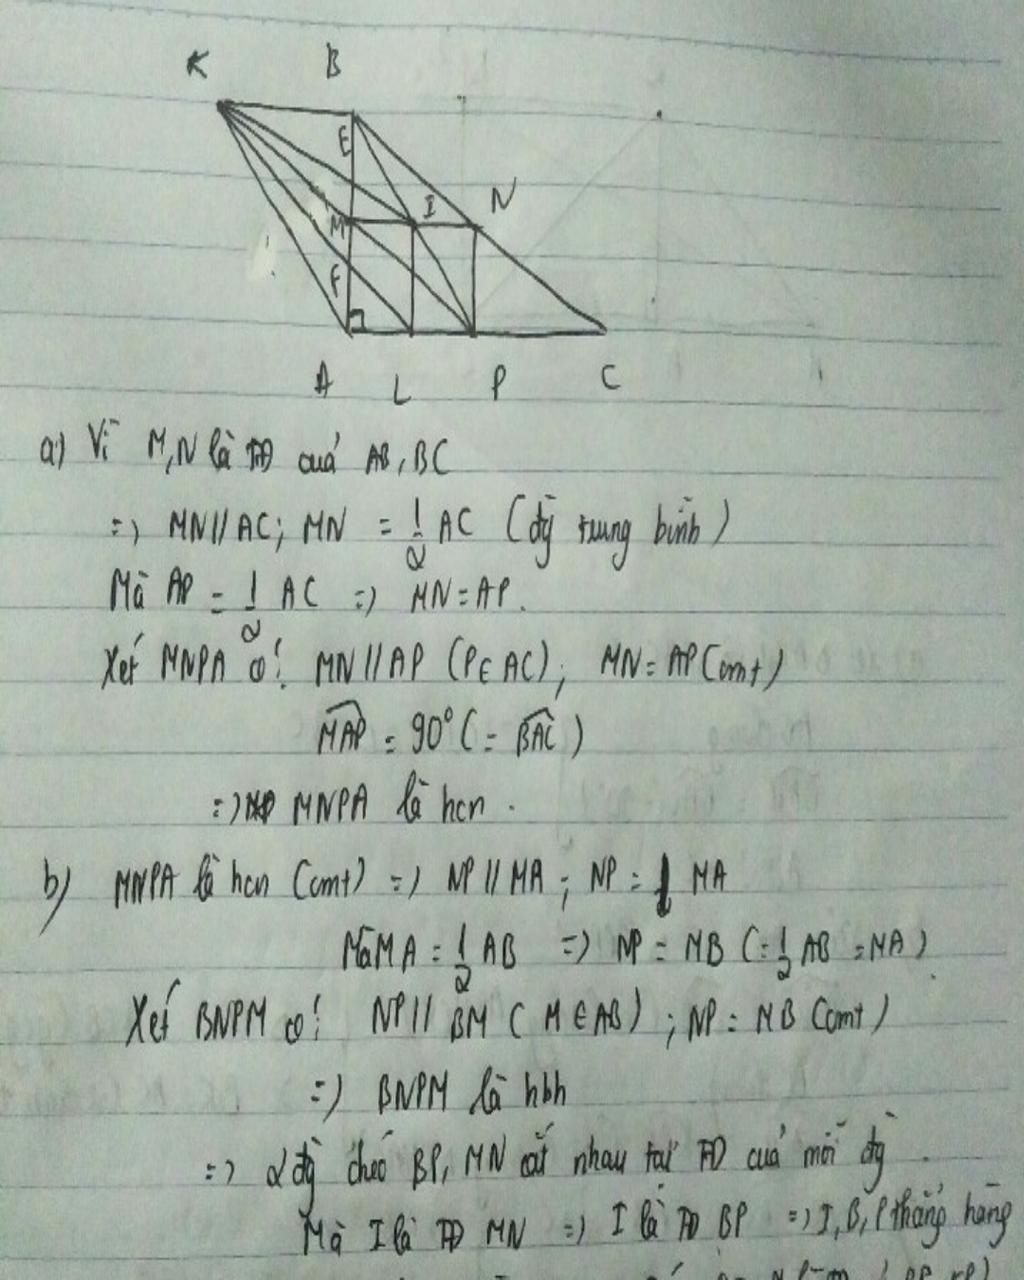 K B
E
I N
M
F
A L P C
a) Vì M,N là TĐ cuả AB, BC
=> MN // AC; MN = 1/2 AC (đg̀ trung bình)
Mà AP = 1/2 AC => MN = AP.
Xét MNPA có: MN // AP (P∈AC); MN = AP (cmt)
MAP = 90° (= BAC)
=> MNPA là hcn.
b) MNPA là hcn (cmt) => NP // MA; NP = MA
Mà MA = 1/2 AB => NP = MB (= 1/2 AB = MA)
Xét BNPM có: NP // BM (M∈AB); NP = MB (cmt)
=> BNPM là hbh
=> 2 đg̀ chéo BP, MN cắt nhau tại TĐ cuả mỗi đg̀.
Mà I là TĐ MN => I là TĐ BP => I, B, P thẳng hàng